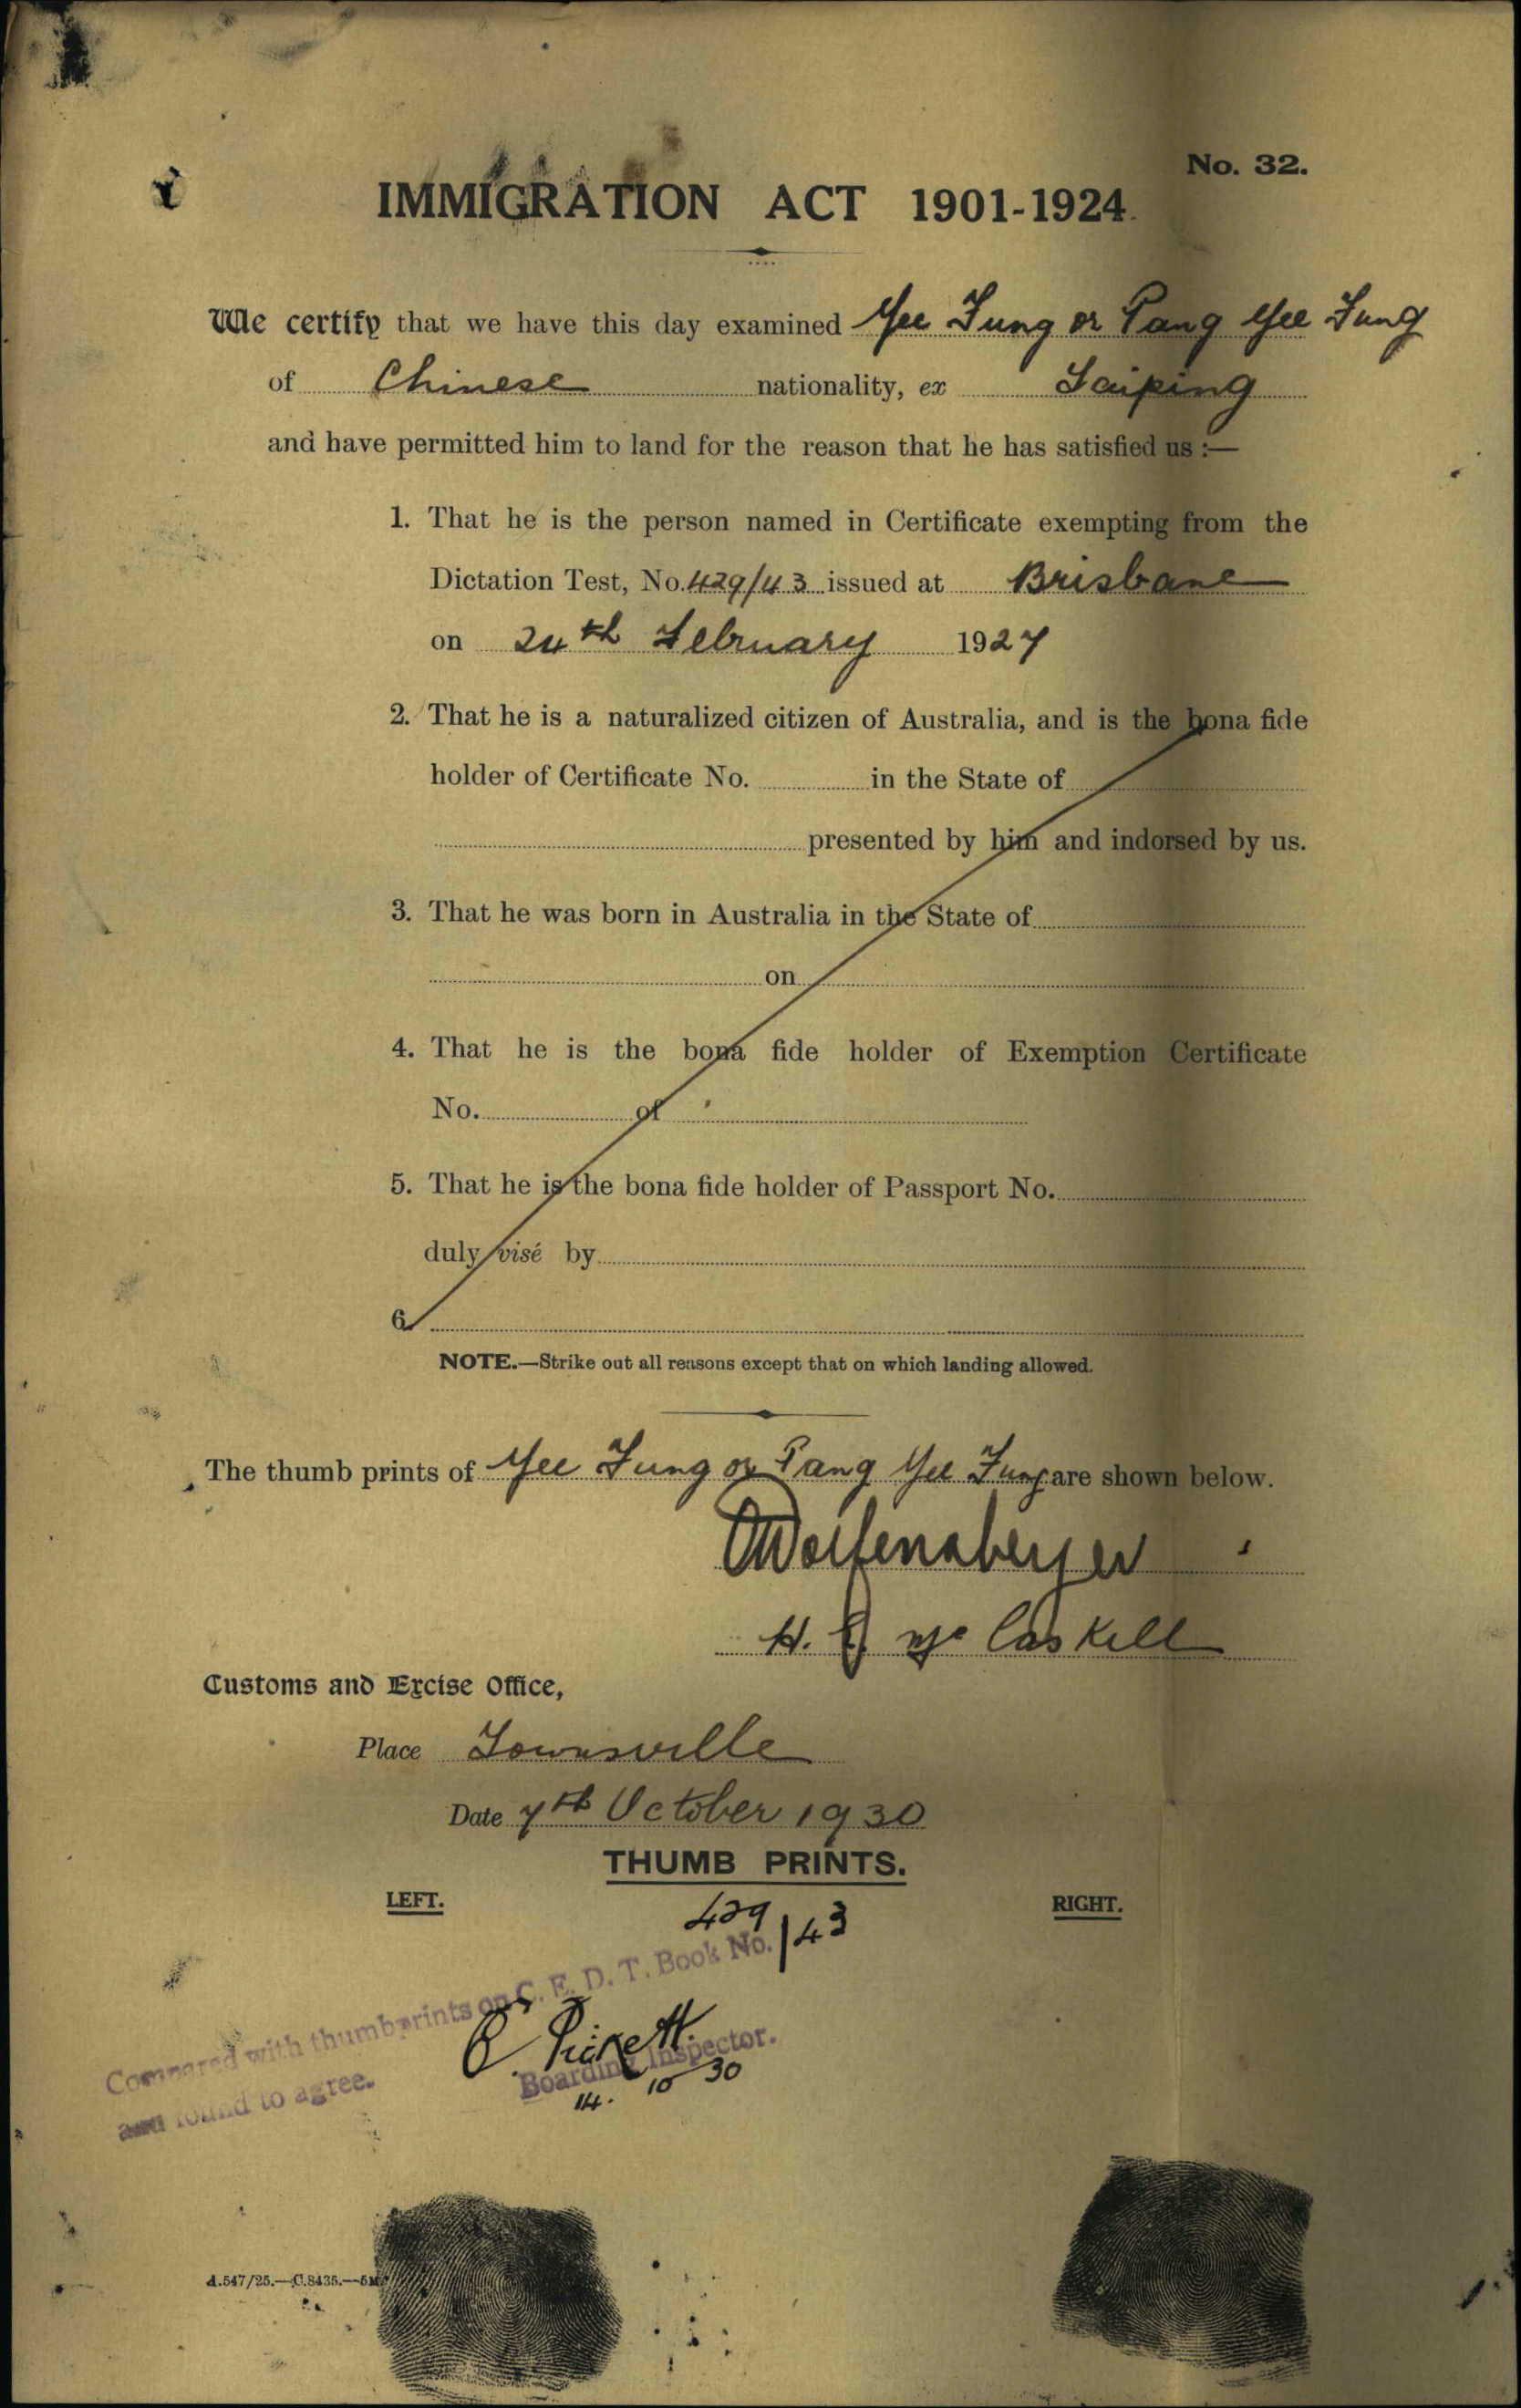 No. 32.
IMMIGRATION ACT 1901-1924.
We certify that we have this day examined Yee Fung or Pang Yee Fung
of Chinese nationality, ex Taiping
and have permitted him to land for the reason that he has satisfied us :—
1. That he is the person named in Certificate exempting from the
Dictation Test, No. 429/43 issued at Brisbane
on 24th February 1927
2. That he is a naturalized citizen of Australia, and is the bona fide
holder of Certificate No. in the State of
presented by him and indorsed by us.
3. That he was born in Australia in the State of
on
4. That he is the bona fide holder of Exemption Certificate
No. of
5. That he is the bona fide holder of Passport No.
duly visé by
6.
NOTE.—Strike out all reasons except that on which landing allowed.
The thumb prints of Yee Fung or Pang Yee Fung are shown below.
H. J. McCaskell
Customs and Excise Office,
Place Townsville
Date 7th October 1930
THUMB PRINTS.
LEFT. RIGHT.
429/43
Compared with thumbprints on C. E. D. T. Book No.
and found to agree.
Boarding Inspector.
14. 10 30
A.547/25.—C.8435.—5M